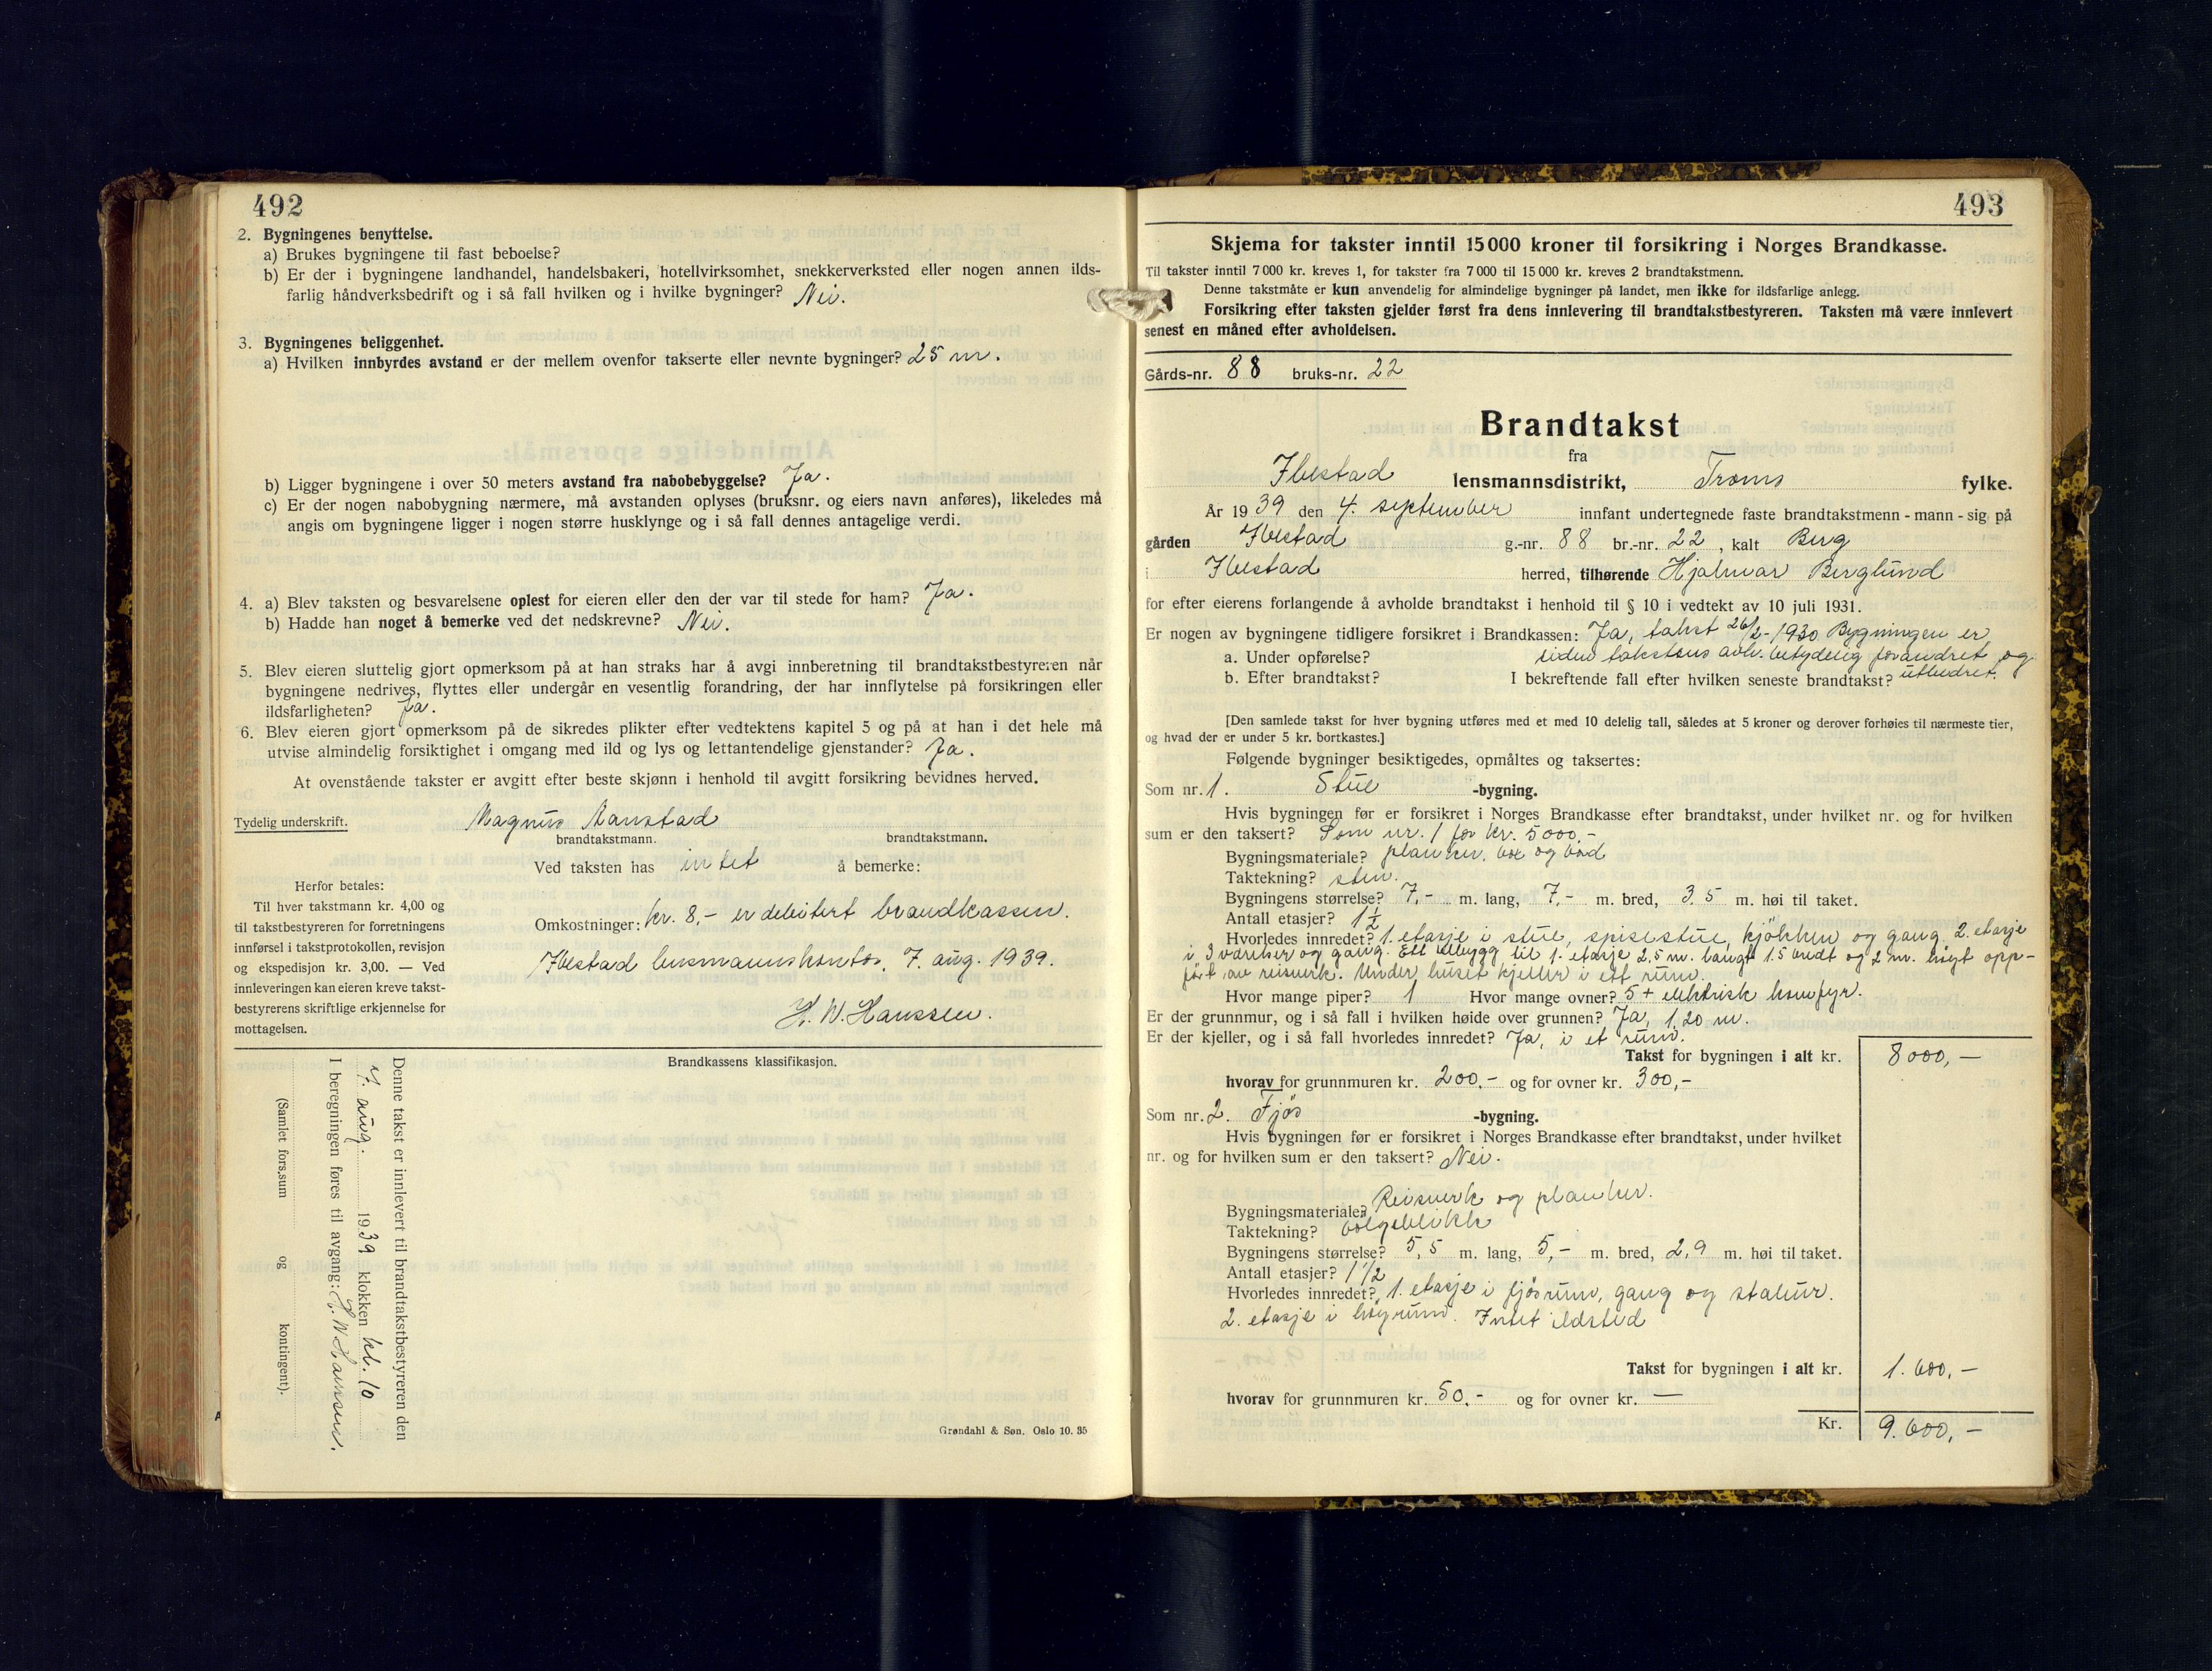 492
2. Bygningenes benyttelse.
a) Brukes bygningene til fast beboelse?
b) Er der i bygningene landhandel, handelsbakeri, hotellvirksomhet, snekkerverksted eller nogen annen ilds-
farlig håndverksbedrift og i så fall hvilken og i hvilke bygninger? Nei.
3. Bygningenes beliggenhet.
a) Hvilken innbyrdes avstand er der mellem ovenfor takserte eller nevnte bygninger? 25 m.
b) Ligger bygningene i over 50 meters avstand fra nabobebyggelse? Ja.
c) Er der nogen nabobygning nærmere, må avstanden oplyses (bruksnr. og eiers navn anføres), likeledes må
angis om bygningene ligger i nogen større husklynge og i så fall dennes antagelige verdi.
4. a) Blev taksten og besvarelsene oplest for eieren eller den der var til stede for ham? Ja.
b) Hadde han noget å bemerke ved det nedskrevne? Nei.
5. Blev eieren sluttelig gjort opmerksom på at han straks har å avgi innberetning til brandtakstbestyreren når
bygningene nedrives, flyttes eller undergår en vesentlig forandring, der har innflytelse på forsikringen eller
ildsfarligheten? Ja.
6. Blev eieren gjort opmerksom på de sikredes plikter efter vedtektens kapitel 5 og på at han i det hele må
utvise almindelig forsiktighet i omgang med ild og lys og lettantendelige gjenstander? Ja.
At ovenstående takster er avgitt efter beste skjønn i henhold til avgitt forsikring bevidnes herved.
Tydelig underskrift. Magnus Hanstad
brandtakstmann. brandtakstmann.
Ved taksten has intet å bemerke:
Herfor betales:
Til hver takstmann kr. 4,00 og
til takstbestyreren for forretningens
innførsel i takstprotokollen, revisjon
og ekspedisjon kr. 3,00. — Ved
innleveringen kan eieren kreve takst-
bestyrerens skriftlige erkjennelse for
mottagelsen.
Omkostninger: kr. 8,- er debitert brandkassen.
Ibestad lensmannskontor, 7. aug. 1939.
H. W. Hanssen.
Brandkassens klassifikasjon.
Denne takst er innlevert til brandtakstbestyreren den
7. aug. 1939 klokken kl. 10
I beregningen føres til avgang: H. W Hanssen.
(Samlet fors.sum og kontingent).
Grøndahl & Søn. Oslo 10. 35
493
Skjema for takster inntil 15 000 kroner til forsikring i Norges Brandkasse.
Til takster inntil 7 000 kr. kreves 1, for takster fra 7 000 til 15 000 kr. kreves 2 brandtakstmenn.
Denne takstmåte er kun anvendelig for almindelige bygninger på landet, men ikke for ildsfarlige anlegg.
Forsikring efter taksten gjelder først fra dens innlevering til brandtakstbestyreren. Taksten må være innlevert
senest en måned efter avholdelsen.
Gårds-nr. 88 bruks-nr. 22
Brandtakst
fra
Ibestad lensmannsdistrikt, Troms fylke.
År 1939 den 4. september innfant undertegnede faste brandtakstmenn - mann - sig på
gården Ibestad g.-nr. 88 br.-nr. 22, kalt Berg
i Ibestad herred, tilhørende Hjalmar Berglund
for efter eierens forlangende å avholde brandtakst i henhold til § 10 i vedtekt av 10 juli 1931.
Er nogen av bygningene tidligere forsikret i Brandkassen: Ja, takst 26/2-1930 Bygningen er
a. Under opførelse? siden takstens avh. betydelig forandret og
b. Efter brandtakst? I bekreftende fall efter hvilken seneste brandtakst? utbedret.
[Den samlede takst for hver bygning utføres med et med 10 delelig tall, således at 5 kroner og derover forhøies til nærmeste tier,
og hvad der er under 5 kr. bortkastes.]
Følgende bygninger besiktigedes, opmåltes og taksertes:
Som nr. 1. Stue -bygning.
Hvis bygningen før er forsikret i Norges Brandkasse efter brandtakst, under hvilket nr. og for hvilken
sum er den taksert? Som nr. 1 for kr. 5000,-
Bygningsmateriale? planker, og bord
Taktekning? sten.
Bygningens størrelse? 7,- m. lang, 7,- m. bred, 3.5 m. høi til taket.
Antall etasjer? 1½
Hvorledes innredet? 1. etasje i stue, spisestue, kjøkken og gang. 2. etasje
i 3 værelser og gang. Ett tilbygg til 1. etasje 2,5 m. langt 1.5 bredt og 2 m. høyt opp-
ført av reisverk. Under huset kjeller i ett rum.
Hvor mange piper? 1 Hvor mange ovner? 5 + elektrisk komfyr.
Er der grunnmur, og i så fall i hvilken høide over grunnen? Ja, 1,20 m.
Er der kjeller, og i så fall hvorledes innredet? Ja, i et rum.
Takst for bygningen i alt kr. 8000,-
hvorav for grunnmuren kr. 200.- og for ovner kr. 300,-
Som nr. 2. Fjøs -bygning.
Hvis bygningen før er forsikret i Norges Brandkasse efter brandtakst, under hvilket
nr. og for hvilken sum er den taksert? Nei.
Bygningsmateriale? Reisverk og planker.
Taktekning? bølgeblikk
Bygningens størrelse? 5,5 m. lang, 5,- m. bred, 2,9 m. høi til taket.
Antall etasjer? 1 1/2
Hvorledes innredet? 1. etasje i fjøsrum, gang og stabur.
2. etasje i høyrum. Intet ildsted
Takst for bygningen i alt kr. 1.600,-
hvorav for grunnmuren kr. 50.- og for ovner kr. —
Kr. 9.600,-